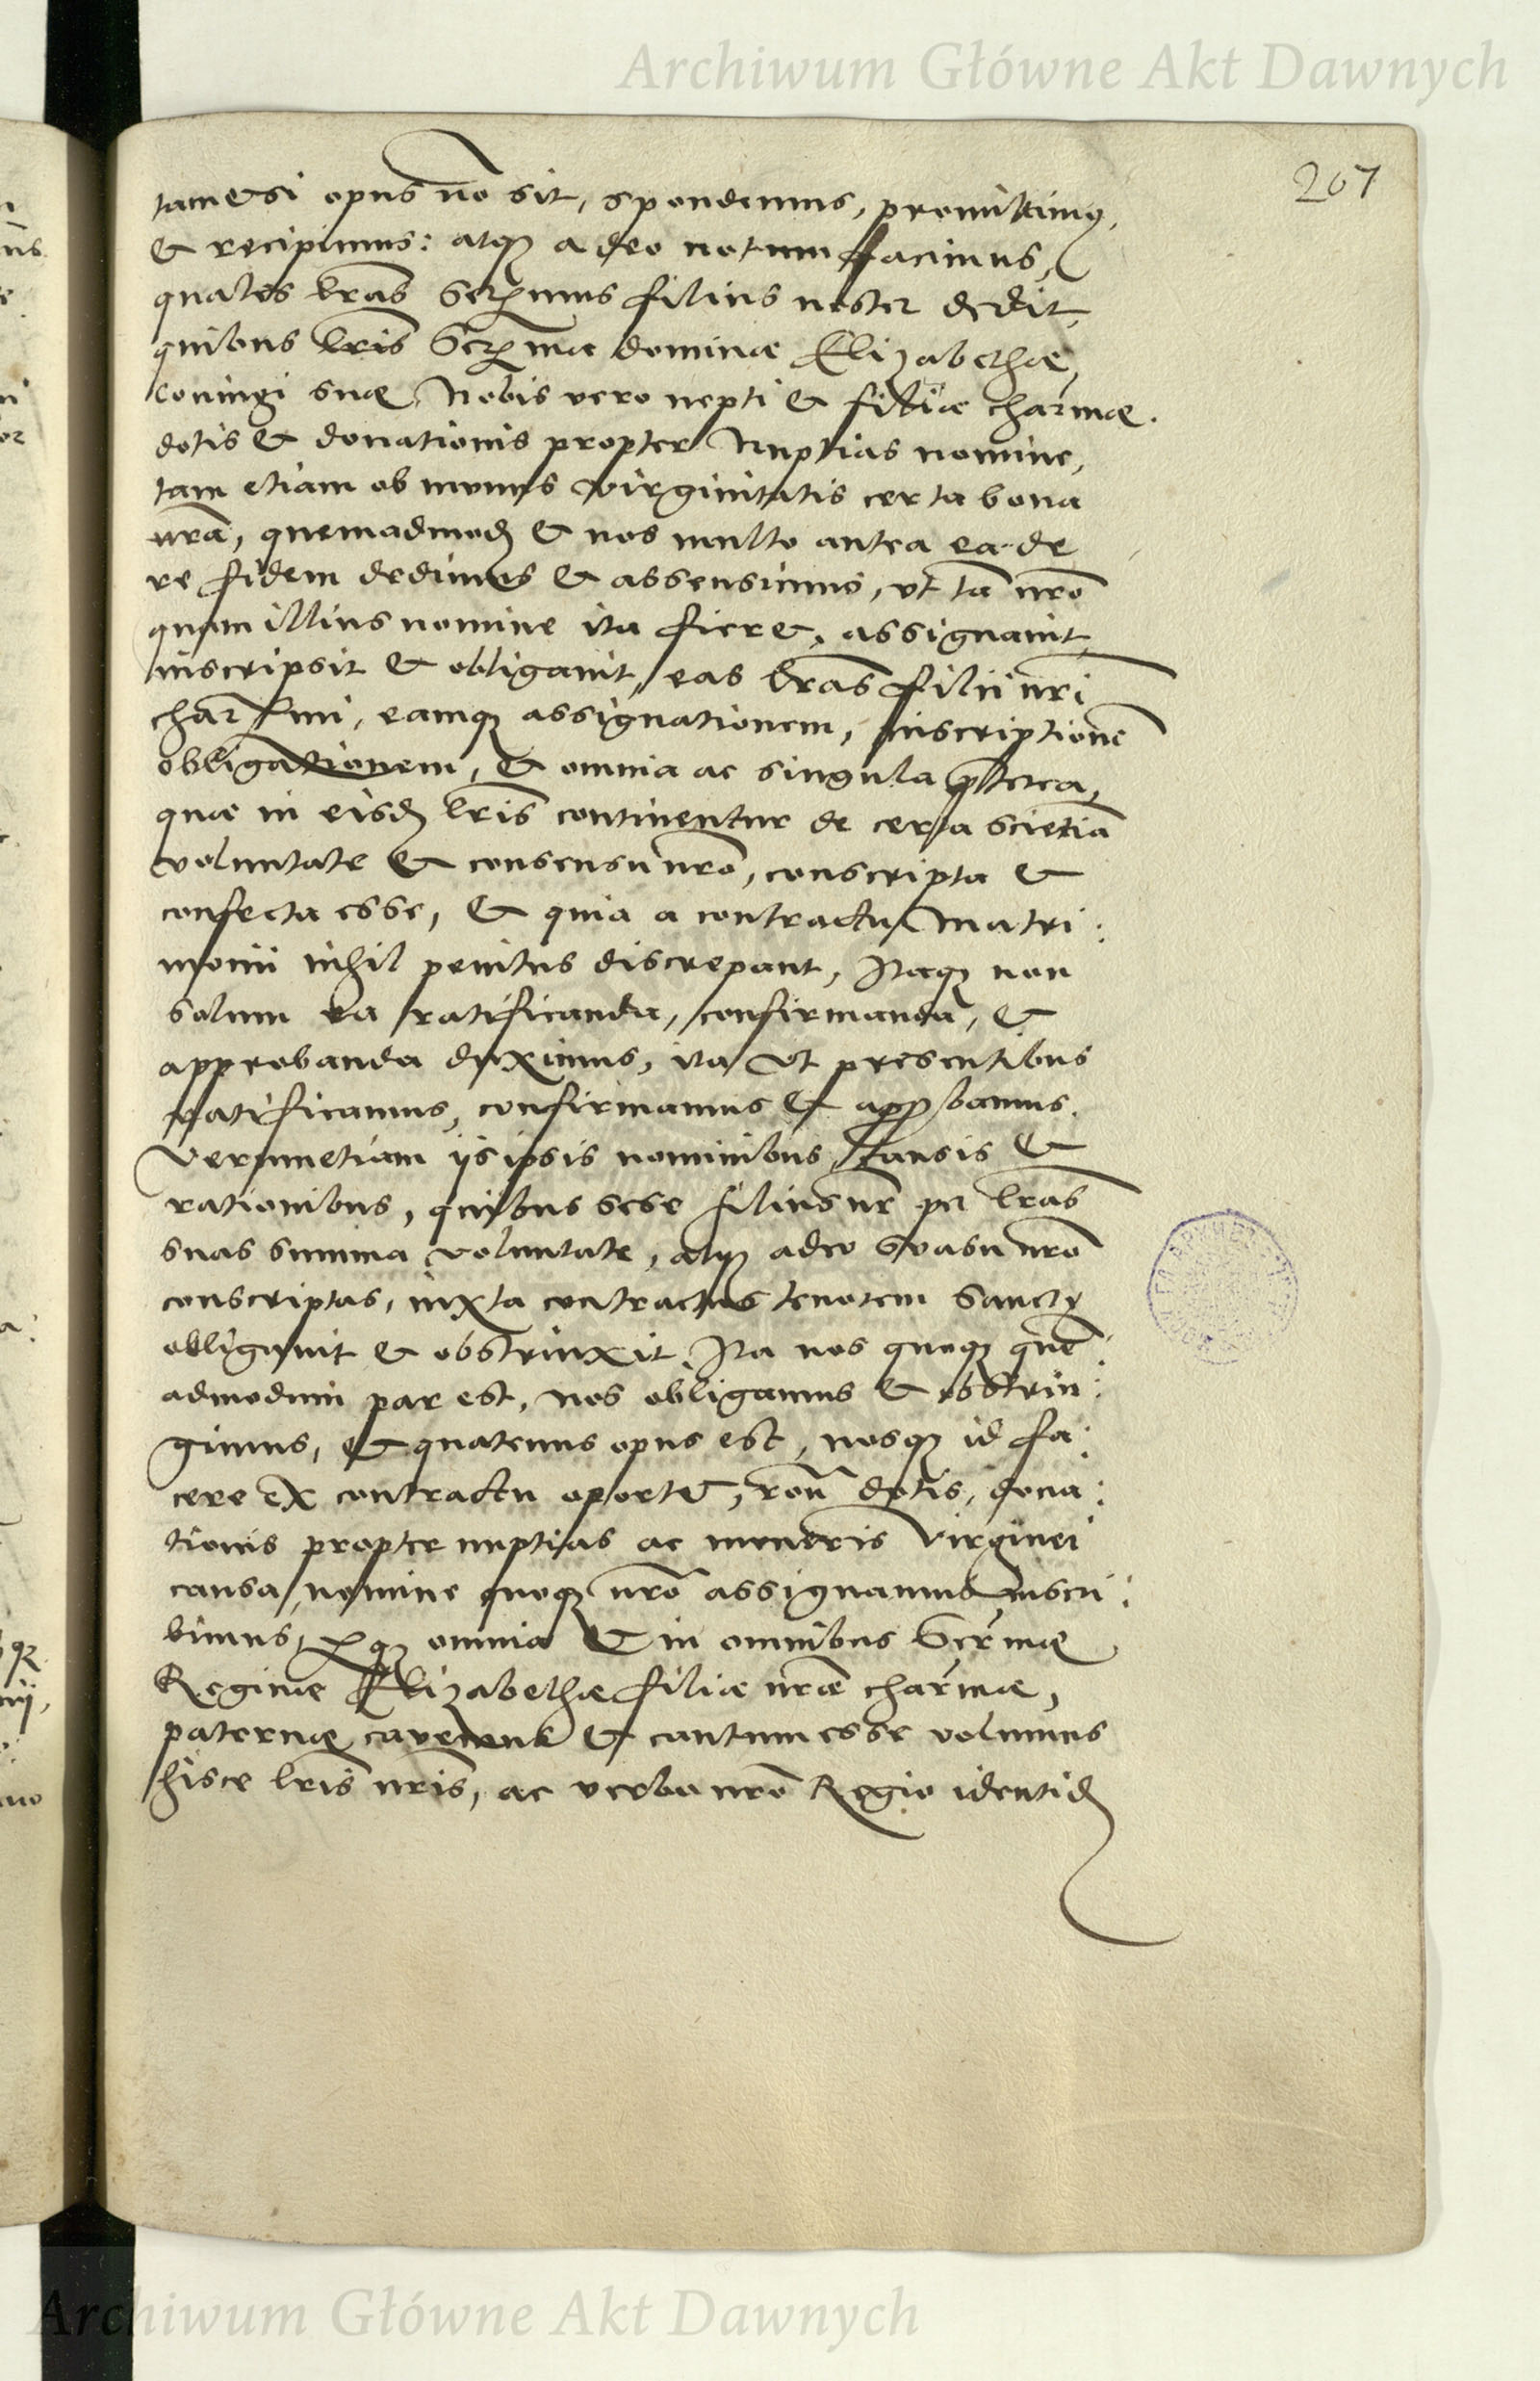 Archiwum Główne Akt Dawnych
207
tametsi opus nō sit, spondemus, promittimus,
& recipimus: atqȝ adeo notum facimus,
quales lr̄as Serenmus filius noster dedit,
quibus lr̄is Serenmae dominæ Elizabethæ,
coniugi suæ, Nobis vero nepti & filiæ charmæ.
dotis & donationis propter Nuptias nomine,
tam etiam ob munus virginitatis certa bona
nr̄a, quemadmodȝ & nos multo antea ea de
re fidem dedimus & assensimus, vt tā nr̄o
quam illius nomine ita fieret, assignauit,
inscripsit & obligauit, eas lr̄as filii nr̄i
charmi, eamqȝ assignationem, inscriptionē
obligationem, & omnia ac singula p̄terea,
quæ in eisdȝ lr̄is continentur de certa scietiā
voluntate & consensu nr̄o, conscripta &
confecta esse, & quia a contractu Matri:
monii nihil penitus discrepant, Itaqȝ non
solum ea ratificanda, confirmanda, &
approbanda duximus, ita vt presentibus
ratificamus, confirmamus & approbamus.
Verumetiam ijs ipsis nominibus, causis &
rationibus, quibus sese filius nr̄ per lr̄as
suas summa voluntate, atqȝ adeo suasu nr̄o
conscriptas, iuxta contractus tenorem sancte
obligauit & obstrinxit. Ita nos quoqȝ quē:
admodum par est, nos obligamus & obstrin:
gimus, & quatenus opus est, nosqȝ id fa:
cere ex contractu oportet, roñ dotis, dona:
tionis propter nuptias ac muneris Virginei
causa, nomine quoqȝ nr̄o assignamus, inscri:
bimus, omnia & in omnibus Sermæ
Reginæ Elizabethæ filiæ nr̄æ charmæ,
paternæ & cautum esse volumus
hisce lr̄is nr̄is, ac verbo nr̄o Regio identidȝ
Archiwum Główne Akt Dawnych